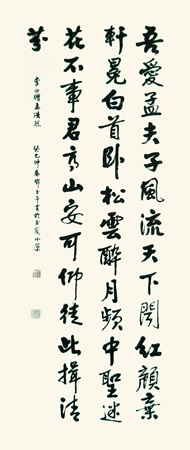 吾愛孟夫子風流天下聞紅顏棄
軒冕白首卧松雲醉月頻中聖迷
花不事君高山安可仰徒此揖清
芬
李白贈孟浩然 癸巳仲春